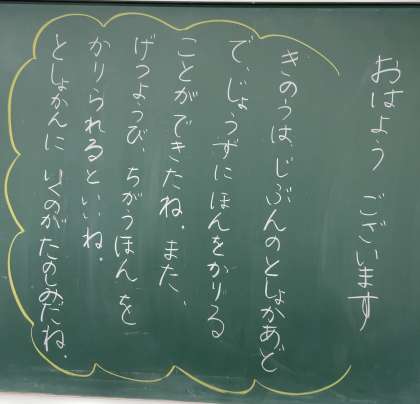 おはよう ございます
きのうは、じぶんのとしょかあど
で、じょうずにほんをかりる
ことができたね。また、
げつようび、ちがうほんを
かりられるといいね。
としょかんに いくのがたのしみだね。